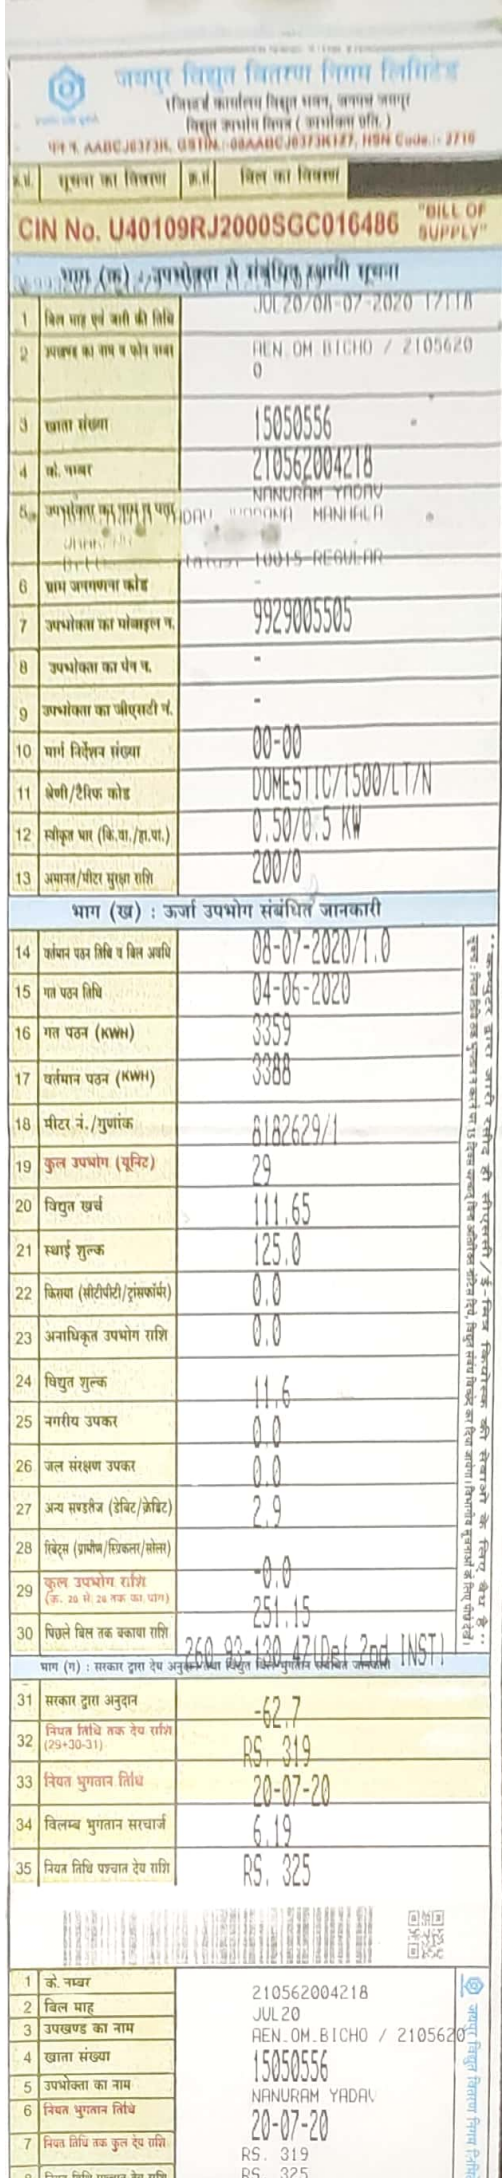 जयपुर विद्युत वितरण निगम लिमिटेड
रजिस्टर्ड कार्यालय विद्युत भवन, जनपथ जयपुर
विद्युत उपभोग विपत्र ( उपभोक्ता प्रति. )
पेन न. AABCJ6373K, GSTIN.-08AABCJ6373K1Z7, HSN Code.:- 2716
क्र.सं. सूचना का विवरण क्र.सं. बिल का विवरण
CIN No. U40109RJ2000SGC016486 "BILL OF SUPPLY"
भाग (क) : उपभोक्ता से संबंधित स्थायी सूचना
1 बिल माह एवं जारी की तिथि JUL20/08-07-2020 17118
2 उपखण्ड का नाम व फोन नम्बर AEN.OM.BICHO / 2105620
0
3 खाता संख्या 15050556
4 के. नम्बर 210562004218
NANURAM YADAV
5 उपभोक्ता का नाम व पता
10015-REGULAR
6 ग्राम जनगणना कोड -
7 उपभोक्ता का मोबाइल न. 9929005505
8 उपभोक्ता का पेन न. -
9 उपभोक्ता का जीएसटी नं. -
10 मार्ग निर्देशन संख्या 00-00
11 श्रेणी/टैरिफ कोड DOMESTIC/1500/LT/N
12 स्वीकृत भार (कि.वा./हा.पा.) 0.50/0.5 KW
13 अमानत/मीटर सुरक्षा राशि 200/0
भाग (ख) : ऊर्जा उपभोग संबंधित जानकारी
14 वर्तमान पठन तिथि व बिल अवधि 08-07-2020/1.0
15 गत पठन तिथि 04-06-2020
16 गत पठन (KWH) 3359
17 वर्तमान पठन (KWH) 3388
18 मीटर नं./गुणांक 8182629/1
19 कुल उपभोग (यूनिट) 29
20 विद्युत खर्च 111.65
21 स्थाई शुल्क 125.0
22 किराया (सीटीपीटी/ट्रांसफॉर्मर) 0.0
23 अनाधिकृत उपभोग राशि 0.0
24 विद्युत शुल्क 11.6
25 नगरीय उपकर 0.0
26 जल संरक्षण उपकर 0.0
27 अन्य सण्डरीज (डेबिट/क्रेडिट) 2.9
28 रिबेट्स (ग्रामीण/स्प्रिंकलर/सोलर) -0.0
29 कुल उपभोग राशि 251.15
(क्र. 20 से 28 तक का योग)
30 पिछले बिल तक बकाया राशि 260.93-120.47(Def 2nd INST)
भाग (ग) : सरकार द्वारा देय अनुदान तथा विद्युत बिल भुगतान संबंधित जानकारी
31 सरकार द्वारा अनुदान -62.7
32 नियत तिथि तक देय राशि RS. 319
(29+30-31)
33 नियत भुगतान तिथि 20-07-20
34 विलम्ब भुगतान सरचार्ज 6.19
35 नियत तिथि पश्चात देय राशि RS. 325
1 के. नम्बर 210562004218
2 बिल माह JUL20
3 उपखण्ड का नाम AEN.OM.BICHO / 2105620
4 खाता संख्या 15050556
5 उपभोक्ता का नाम NANURAM YADAV
6 नियत भुगतान तिथि 20-07-20
7 नियत तिथि तक कुल देय राशि RS. 319
RS. 325
जयपुर विद्युत वितरण निगम